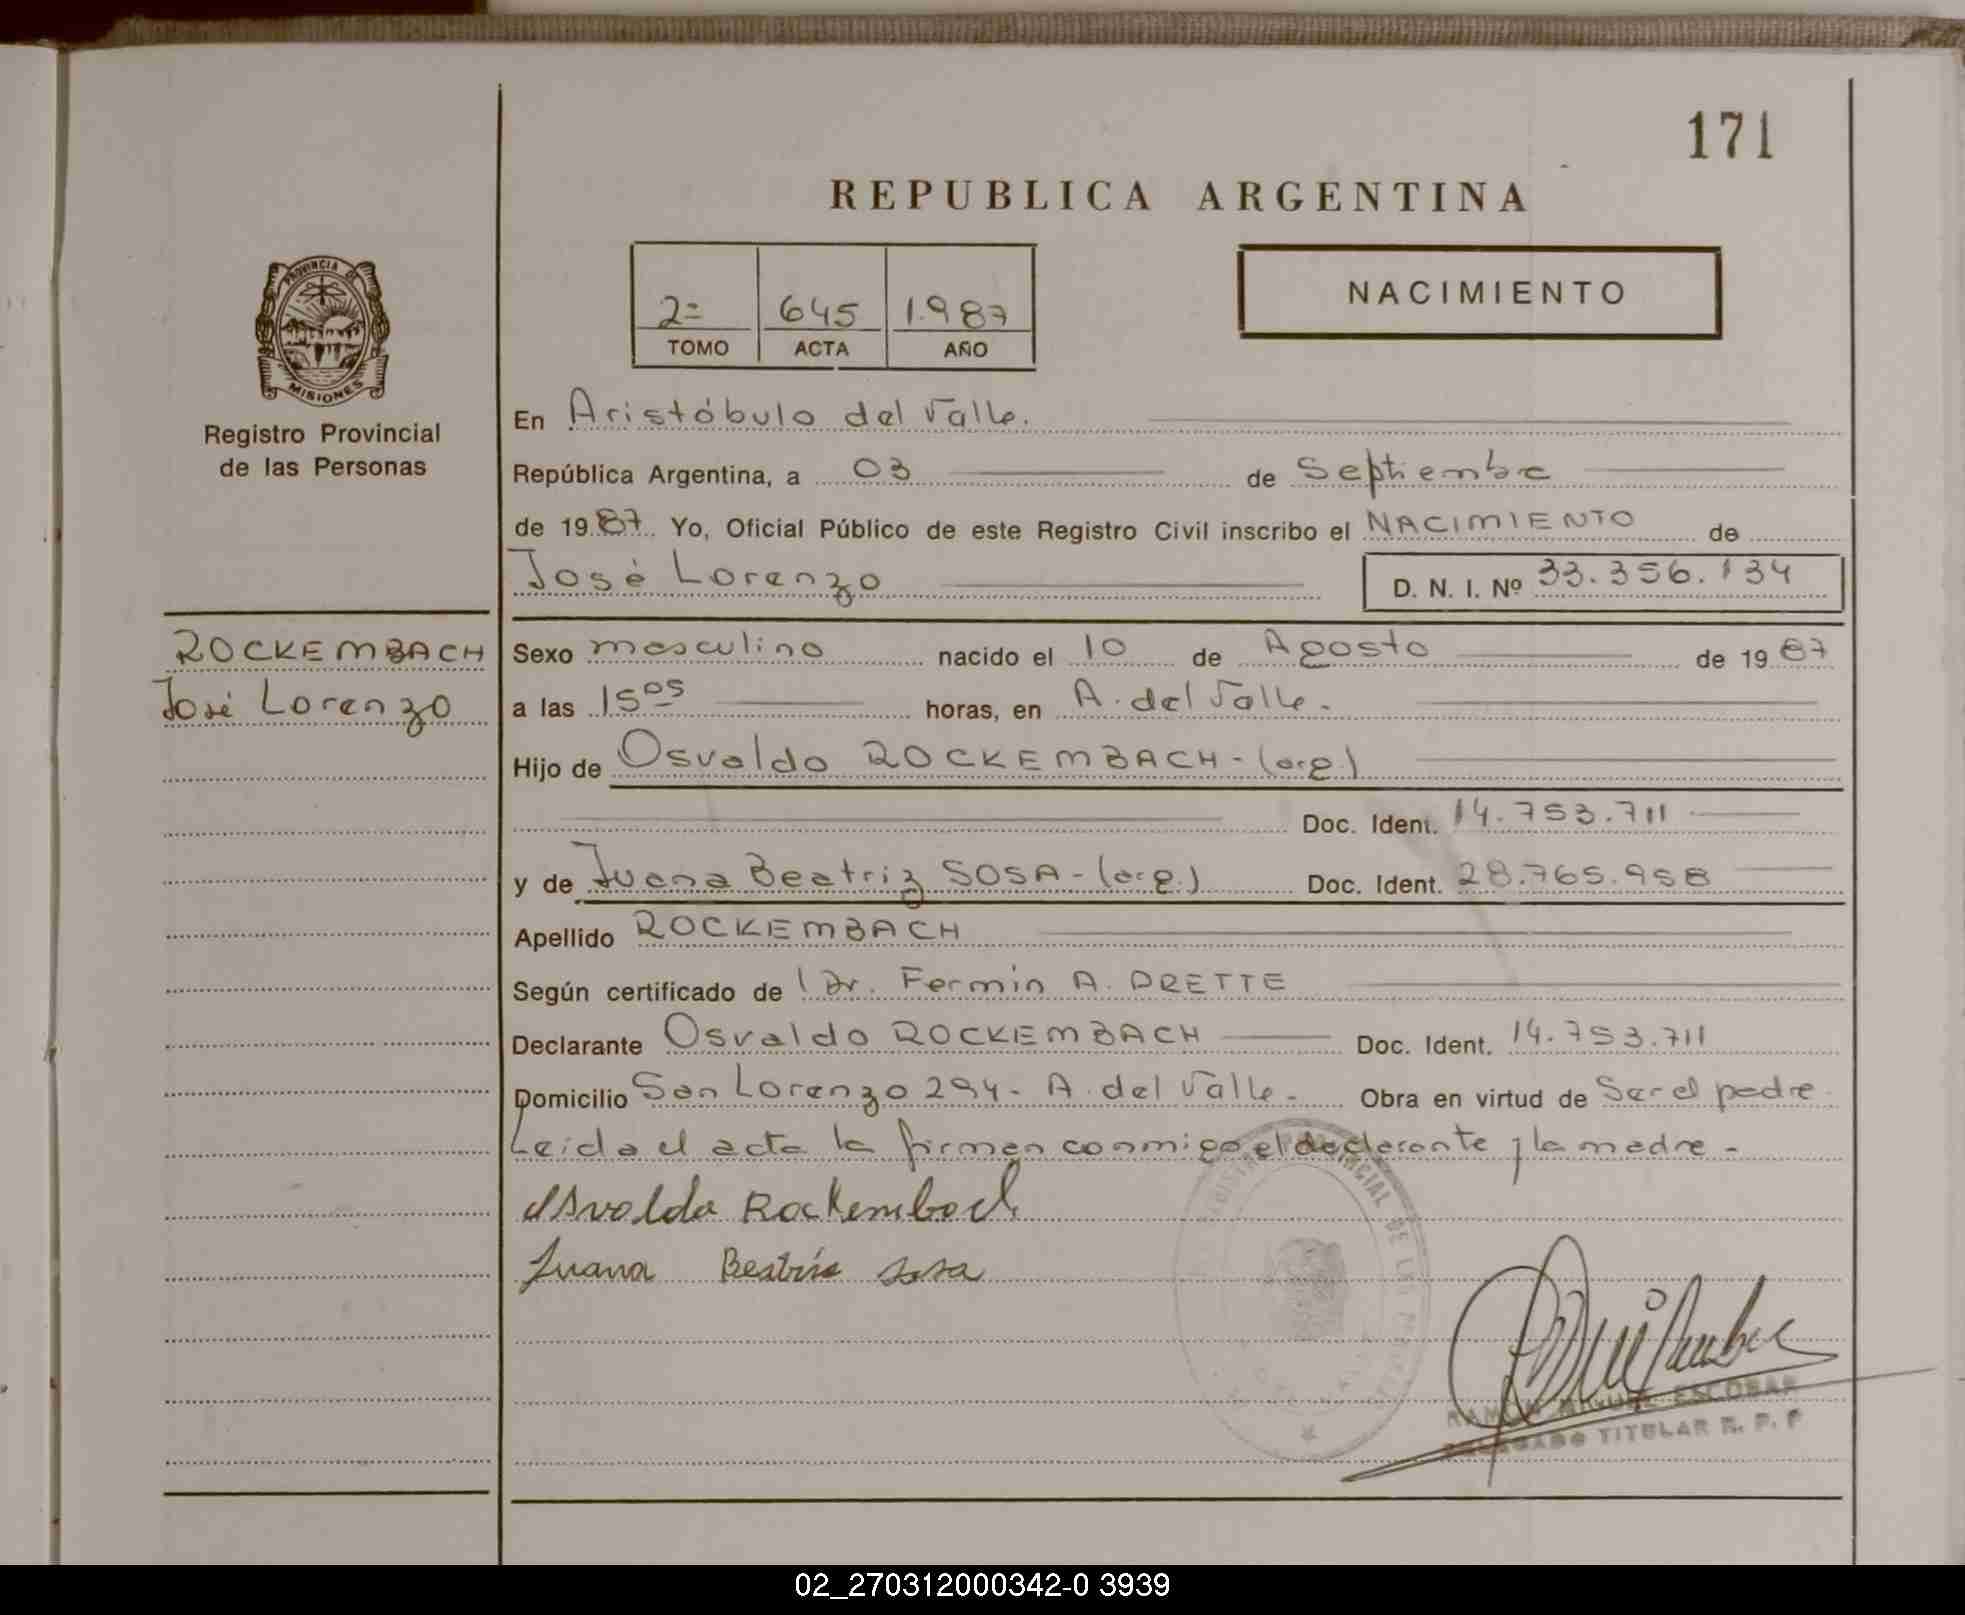 171
REPUBLICA ARGENTINA
2=
TOMO
645
ACTA
1.987
AÑO
NACIMIENTO
PROVINCIA DE
MISIONES
Registro Provincial
de las Personas
ROCKEMBACH
José Lorenzo
En Aristóbulo del Valle.
República Argentina, a 03 de Septiembre
de 1987 Yo, Oficial Público de este Registro Civil inscribo el NACIMIENTO de
José Lorenzo D. N. I. Nº 33.356.134
Sexo masculino nacido el 10 de Agosto de 1987
a las 15 05 horas, en A. del Valle.-
Hijo de Osvaldo ROCKEMBACH-(arg.)
Doc. Ident. 14.753.711
y de Juana Beatriz SOSA-(arg.) Doc. Ident. 28.765.958
Apellido ROCKEMBACH
Según certificado de Dr. Fermín A. DRETTE
Declarante Osvaldo ROCKEMBACH Doc. Ident. 14.753.711
Domicilio San Lorenzo 294- A. del Valle.- Obra en virtud de Ser el padre
Leida el acta la firman conmigo el declarante y la madre-
Osvaldo Rockembach
Juana Beatriz Sosa
RAMON MIGUEL ESCOBAR
DELEGADO TITULAR R. P. P
02_270312000342-0 3939